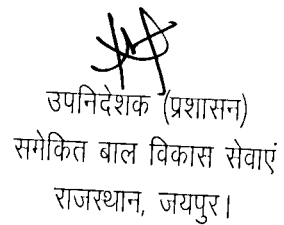 उपनिदेशक (प्रशासन)
समेकित बाल विकास सेवाएं
राजस्थान, जयपुर।